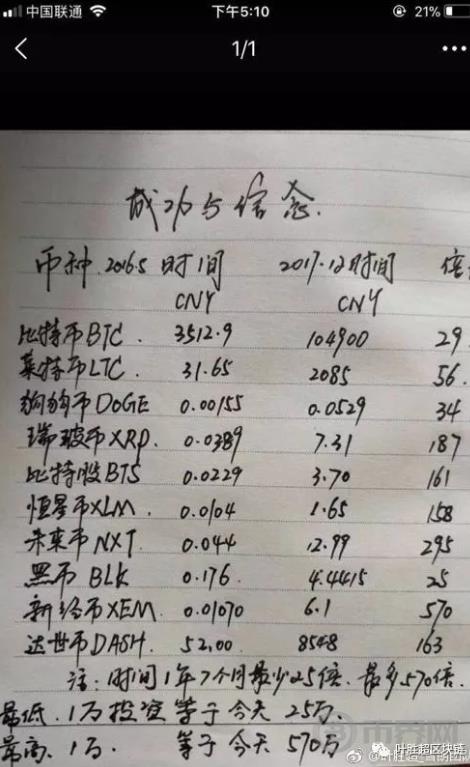 中国联通 下午5:10 21%
1/1
成功与信念.
币种.2016.5 时间 2017.12时间 倍
CNY CNY
比特币BTC. 3512.9 104900 29
莱特币LTC. 31.65 2085 56.
狗狗币DOGE 0.00155 0.0529 34
瑞波币XRP. 0.0389 7.31 187
比特股BTS 0.0229 3.70 161
恒星币XLM. 0.0104 1.65 158
未来币NXT. 0.044 12.99 295
黑币 BLK 0.176. 4.4415 25
新经币XEM. 0.01070 6.1 570
达世币DASH. 52.00 8548 163
注:时间1年7个月最少25倍.最多570倍.
最低.1万投资等于今天25万.
最高.1万. 等于今天570万
币界网
叶胜超区块链